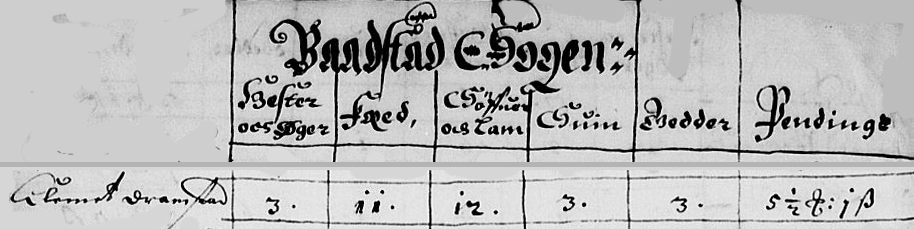 Baadstad Sogen:
Hester och Øger
Fæed,
Souffuer och Lam
Suin
Gedder
Pendinge
Clemet Dramstad 3. 11. 12. 3. 3. 5½ : 1 ß